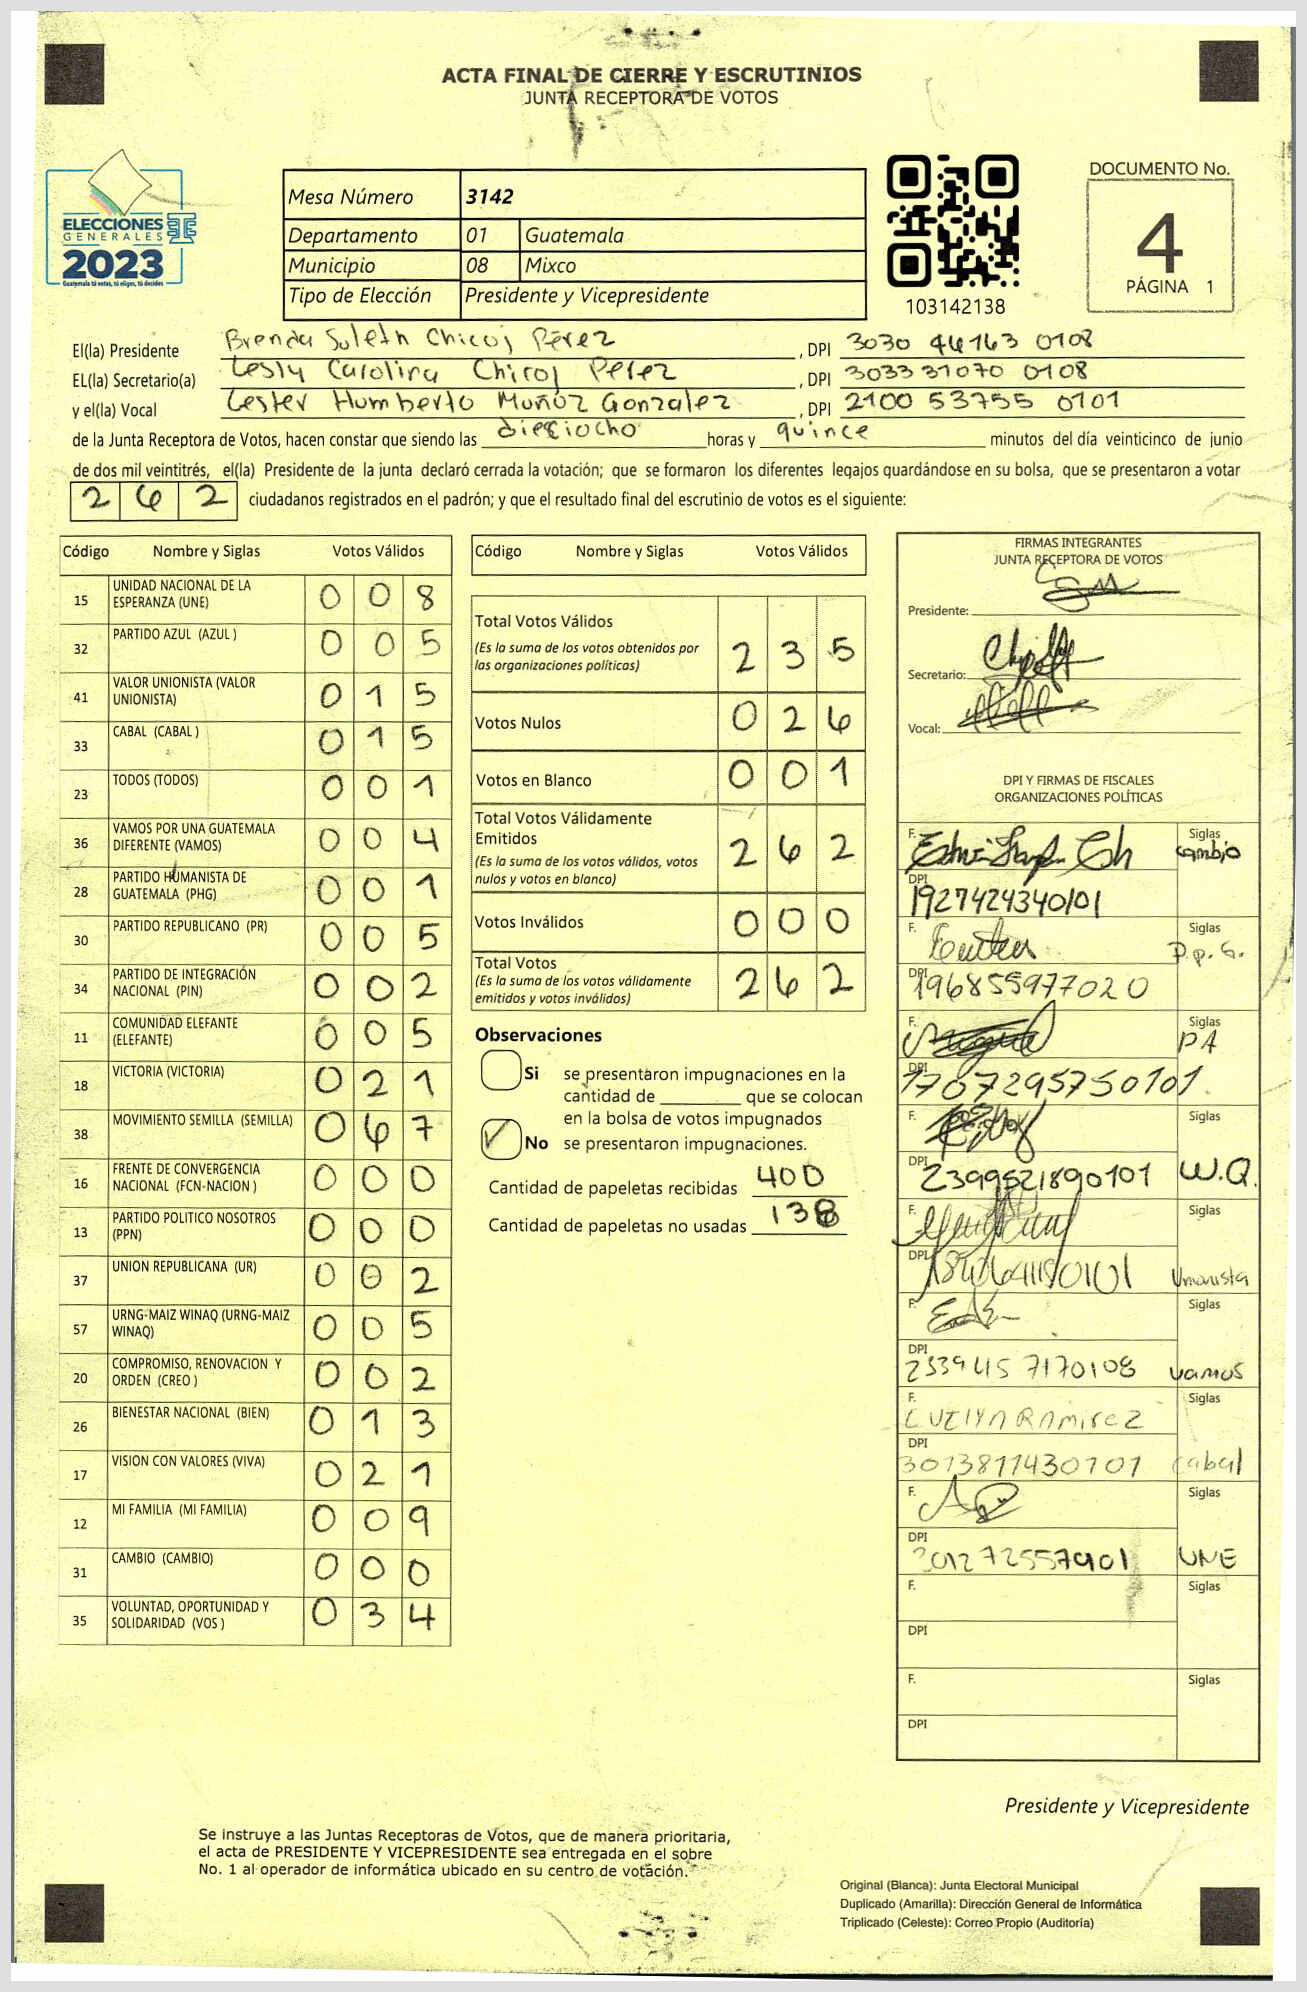 ACTA FINAL DE CIERRE Y ESCRUTINIOS
JUNTA RECEPTORA DE VOTOS
ELECCIONES
GENERALES
2023
Guatemala tú votas, tú eliges, tú decides
Mesa Número 3142
Departamento 01 Guatemala
Municipio 08 Mixco
Tipo de Elección Presidente y Vicepresidente
103142138
DOCUMENTO No.
4
PÁGINA 1
El(la) Presidente Brenda Suleth Chicoj Pérez, DPI 3030 44163 0108
EL(la) Secretario(a) Lesly Carolina Chicoj Perez, DPI 3033 31070 0108
y el(la) Vocal Lester Humberto Muñoz Gonzalez, DPI 2100 53755 0101
de la Junta Receptora de Votos, hacen constar que siendo las dieciocho horas y quince minutos del día veinticinco de junio
de dos mil veintitrés, el(la) Presidente de la junta declaró cerrada la votación; que se formaron los diferentes legajos guardándose en su bolsa, que se presentaron a votar
262 ciudadanos registrados en el padrón; y que el resultado final del escrutinio de votos es el siguiente:
Código Nombre y Siglas Votos Válidos
15 UNIDAD NACIONAL DE LA ESPERANZA (UNE) 0 0 8
32 PARTIDO AZUL (AZUL ) 0 0 5
41 VALOR UNIONISTA (VALOR UNIONISTA) 0 1 5
33 CABAL (CABAL ) 0 1 5
23 TODOS (TODOS) 0 0 1
36 VAMOS POR UNA GUATEMALA DIFERENTE (VAMOS) 0 0 4
28 PARTIDO HUMANISTA DE GUATEMALA (PHG) 0 0 1
30 PARTIDO REPUBLICANO (PR) 0 0 5
34 PARTIDO DE INTEGRACIÓN NACIONAL (PIN) 0 0 2
11 COMUNIDAD ELEFANTE (ELEFANTE) 0 0 5
18 VICTORIA (VICTORIA) 0 2 1
38 MOVIMIENTO SEMILLA (SEMILLA) 0 6 7
16 FRENTE DE CONVERGENCIA NACIONAL (FCN-NACION ) 0 0 0
13 PARTIDO POLITICO NOSOTROS (PPN) 0 0 0
37 UNION REPUBLICANA (UR) 0 0 2
57 URNG-MAIZ WINAQ (URNG-MAIZ WINAQ) 0 0 5
20 COMPROMISO, RENOVACION Y ORDEN (CREO ) 0 0 2
26 BIENESTAR NACIONAL (BIEN) 0 1 3
17 VISION CON VALORES (VIVA) 0 2 1
12 MI FAMILIA (MI FAMILIA) 0 0 9
31 CAMBIO (CAMBIO) 0 0 0
35 VOLUNTAD, OPORTUNIDAD Y SOLIDARIDAD (VOS ) 0 3 4
Código Nombre y Siglas Votos Válidos
Total Votos Válidos
(Es la suma de los votos obtenidos por las organizaciones políticas) 2 3 5
Votos Nulos 0 2 6
Votos en Blanco 0 0 1
Total Votos Válidamente Emitidos
(Es la suma de los votos válidos, votos nulos y votos en blanco) 2 6 2
Votos Inválidos 0 0 0
Total Votos
(Es la suma de los votos válidamente emitidos y votos inválidos) 2 6 2
Observaciones
Si se presentaron impugnaciones en la
cantidad de ________ que se colocan
en la bolsa de votos impugnados
No se presentaron impugnaciones.
Cantidad de papeletas recibidas 400
Cantidad de papeletas no usadas 138
FIRMAS INTEGRANTES
JUNTA RECEPTORA DE VOTOS
Presidente:
Secretario:
Vocal:
DPI Y FIRMAS DE FISCALES
ORGANIZACIONES POLÍTICAS
F. Siglas cambio
DPI 1927424340101
F. Siglas P.p.G.
DPI 196855977020
F. Siglas PA
DPI 1707295750101
F. Siglas W.Q.
DPI 2399521890101
F. Siglas Unionista
DPI
F. Siglas vamos
DPI 2339457170108
F. EVELYN RAMIREZ Siglas cabal
DPI 3013811430101
F. Siglas UNE
DPI 301272557901
F. Siglas
DPI
F. Siglas
DPI
Presidente y Vicepresidente
Se instruye a las Juntas Receptoras de Votos, que de manera prioritaria,
el acta de PRESIDENTE Y VICEPRESIDENTE sea entregada en el sobre
No. 1 al operador de informática ubicado en su centro de votación.
Original (Blanca): Junta Electoral Municipal
Duplicado (Amarilla): Dirección General de Informática
Triplicado (Celeste): Correo Propio (Auditoría)